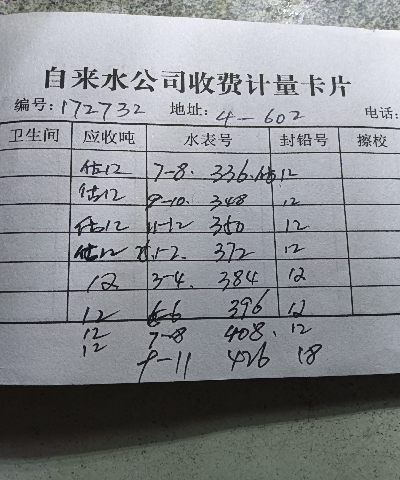 自来水公司收费计量卡片
编号:172732 地址:4-602 电话:
卫生间 应收吨 水表号 封铅号 擦校
估12 7-8. 336.估12
估12 9-10. 348 12
估12 11-12 360 12
估12 1-2. 372 12
12 3-4. 384 12
12 5-6 396 12
12 7-8 408. 12
12 9-11 426 18